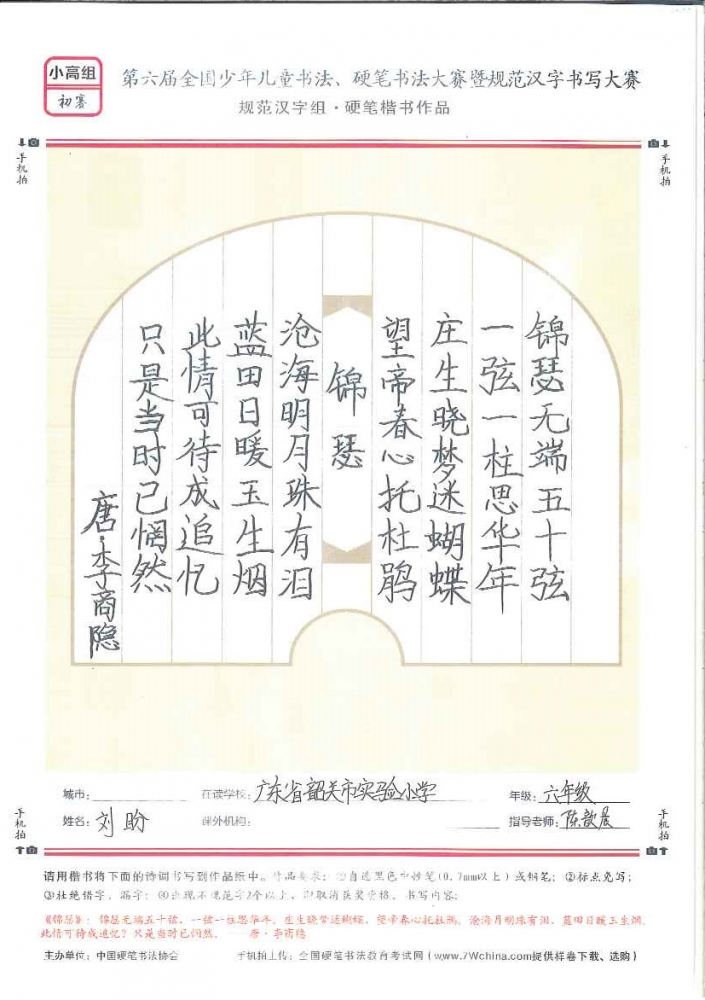 小高组
初赛
第六届全国少年儿童书法、硬笔书法大赛暨规范汉字书写大赛
规范汉字组·硬笔楷书作品
手机拍
手机拍
锦瑟无端五十弦
一弦一柱思华年
庄生晓梦迷蝴蝶
望帝春心托杜鹃
锦瑟
沧海明月珠有泪
蓝田日暖玉生烟
此情可待成追忆
只是当时已惘然
唐·李商隐
城市：
在读学校：广东省韶关市实验小学
年级：六年级
姓名：刘盼
课外机构：
指导老师：陈歆晨
手机拍
手机拍
请用楷书将下面的诗词书写到作品纸中。作品要求：①自选黑色中性笔(0.7mm以上)或钢笔；②标点免写；
③杜绝错字、漏字；④出现不规范字2个以上，即取消获奖资格。书写内容：
《锦瑟》：锦瑟无端五十弦，一弦一柱思华年。庄生晓梦迷蝴蝶，望帝春心托杜鹃。沧海月明珠有泪，蓝田日暖玉生烟。
此情可待成追忆？只是当时已惘然。——唐·李商隐
主办单位：中国硬笔书法协会
手机拍上传：全国硬笔书法教育考试网（www.7Wchina.com提供样卷下载、选购）